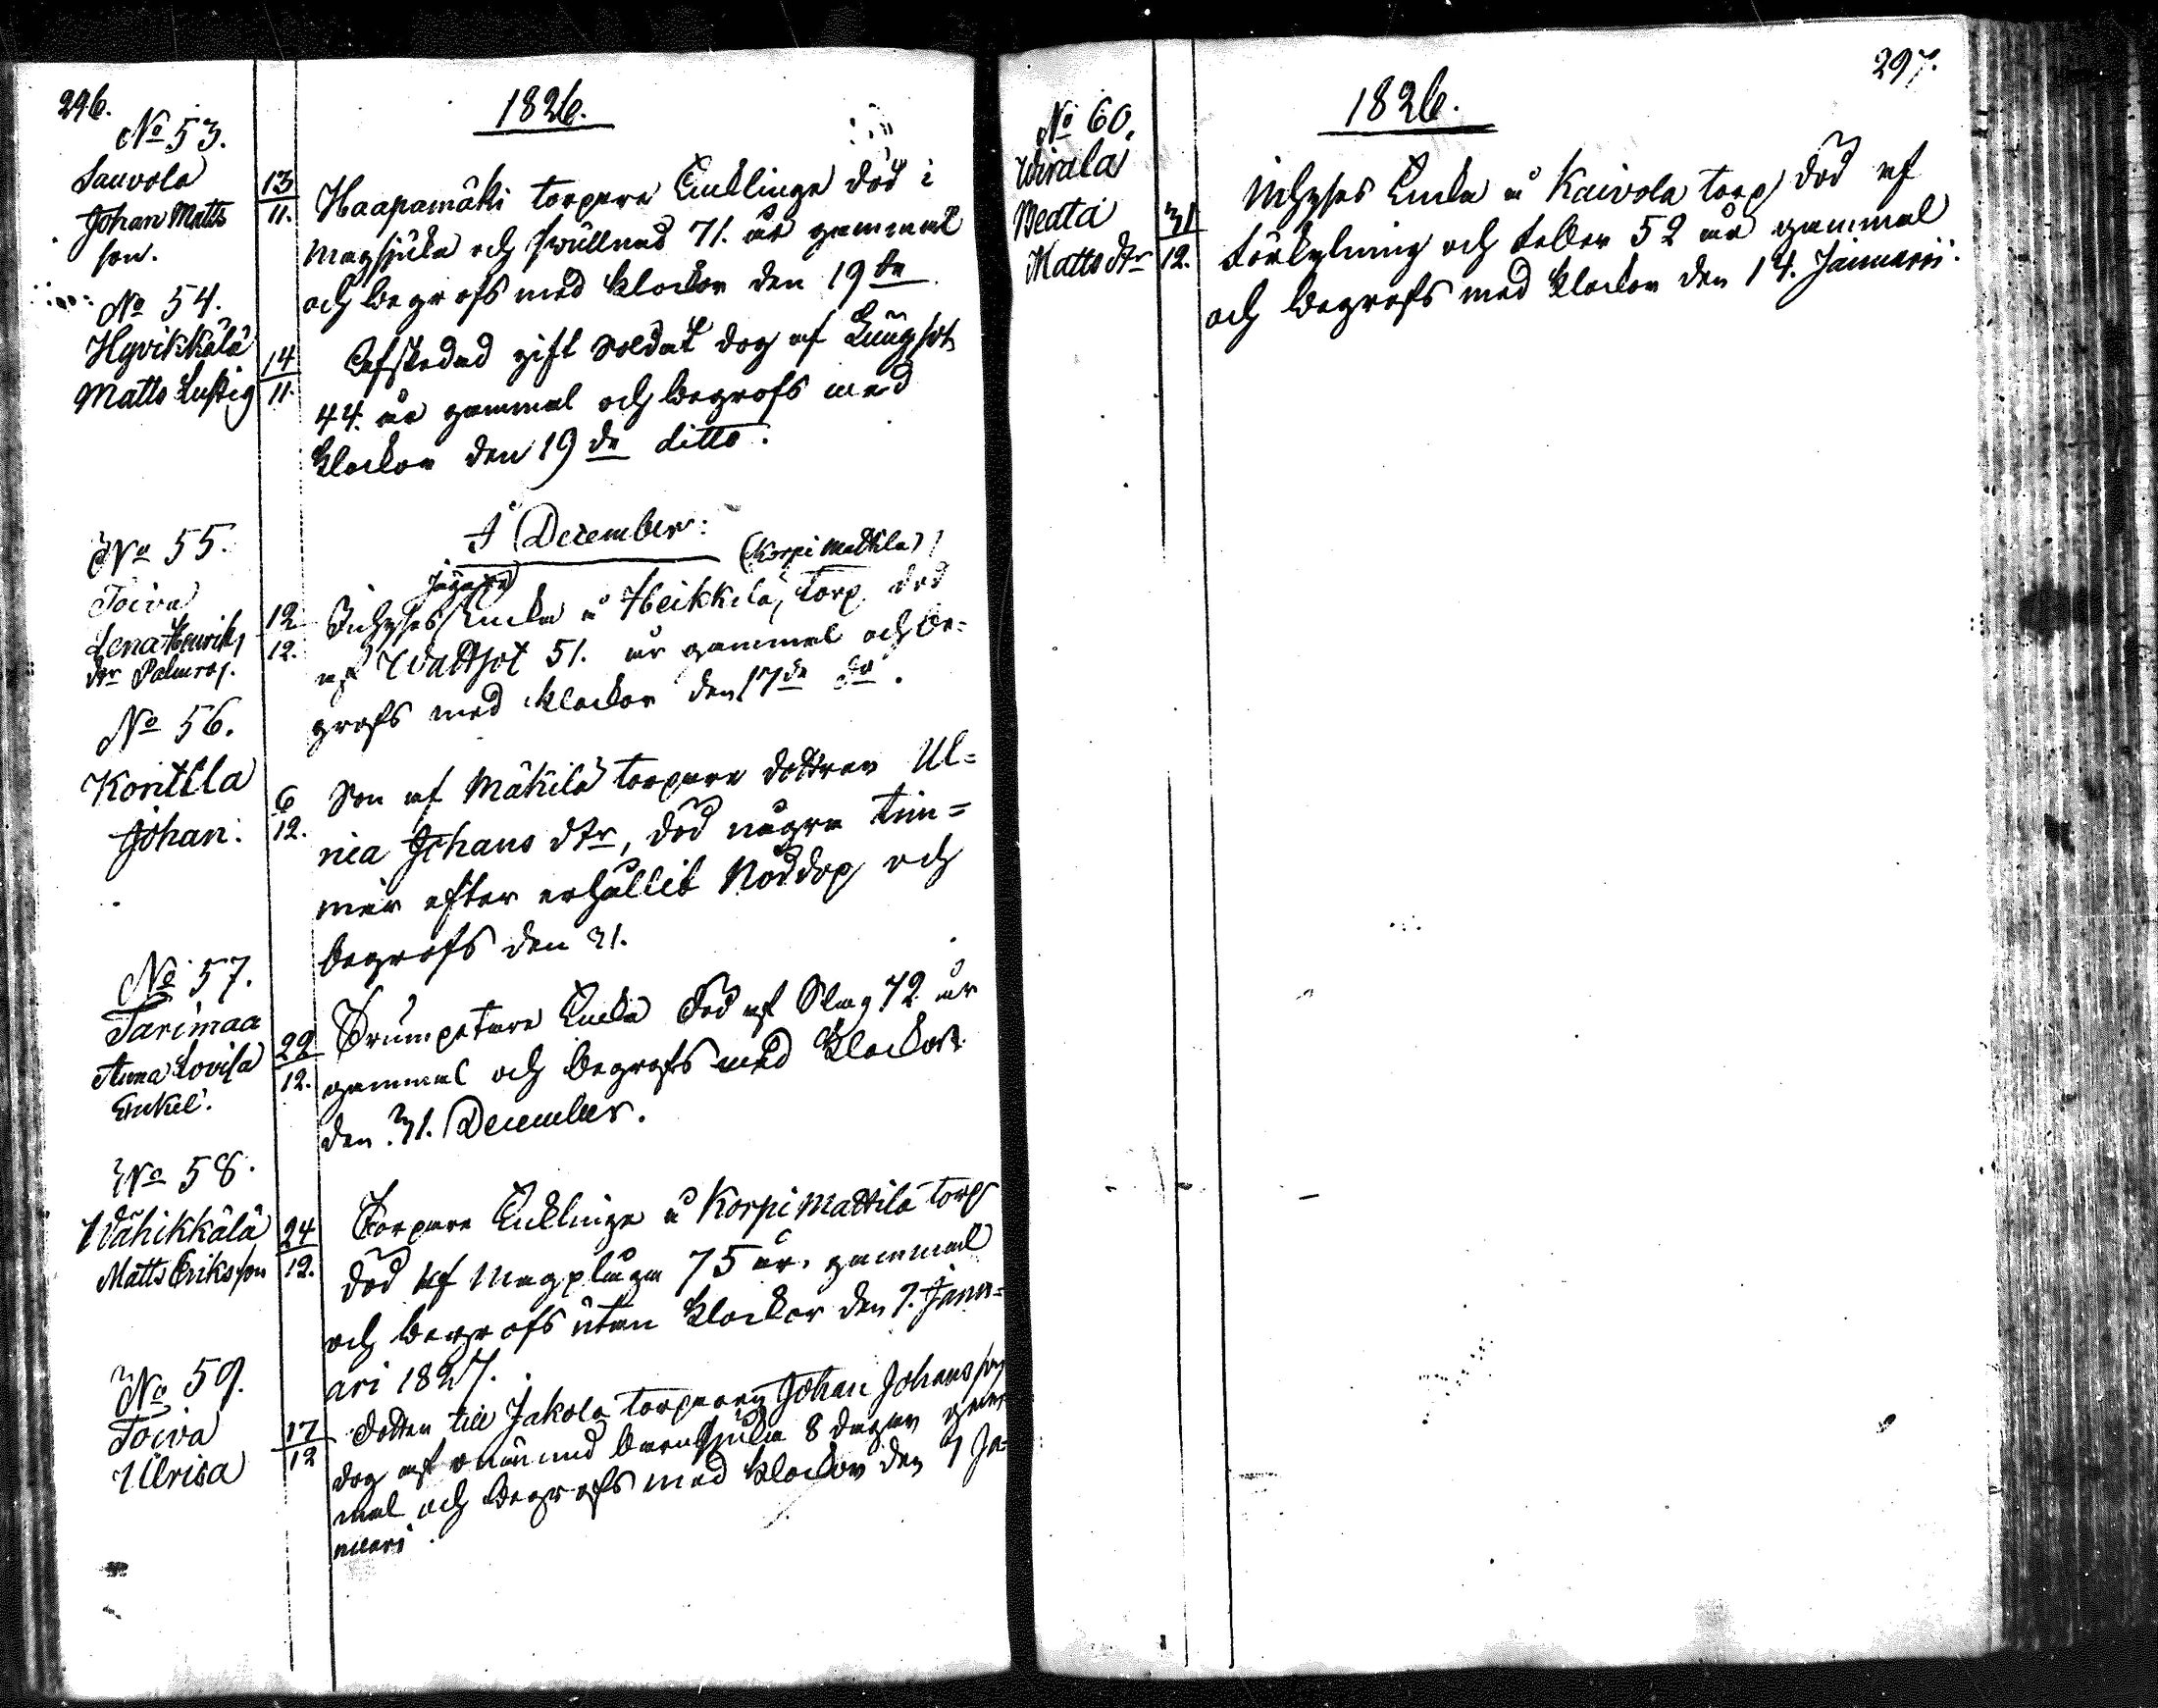 296.
1826.
No 53.
Sauvola
Johan Matts
son.
13
11.
Haapamäki torpare Enklinge död i
magsjuka och swullnad 71. år gammal
och begrofs med klockor den 19de
No 54.
Hyvikkälä
Matts Lustig
14
11.
Afskedad gift Soldat dog af Lungsot
44. år gammal och begrofs med
klockor den 19de ditto.
I December:
No 55.
Toiva
Lena Henriks
dtr Palmros.
12
12.
(Korpi Mattila)
Jägare
Inhyses Enka å Heikkilä, torp död
af Wattsot 51. år gammal och be-
grofs med klockor den 17de do.
No 56.
Konttila
Johan.
6
12.
Son af Mäkilä torpare dottren Ul=
rica Johans dtr, död några tim=
mar efter erhållit Nöddop och
begrofs den 31.
No 57.
Tarimaa
Anna Lovisa
Enkel.
22
12.
Trumpetare Enka död af Slag 72 år
gammal och begrofs med klockor
den 31. December.
No 58.
Wähikkälä
Matts Eriksson
24
12.
Torpare Enklinge å Korpi Mattila torp
död af Magplåga 75 år gammal
och begrofs utan klockor den 7. Janu=
ari 1827.
No 59.
Toiva
Ulrica
17
12
Dotter till Jakola torparen Johan Johansson
dog af okänd barnsjuka 8 dagar gam
mal och begrofs med klockor den 7 Ja=
nuari.
297.
1826.
No 60.
Wirala
Beata
Matts dtr
31
12.
Inhyses Enka å Kaivola torp död af
förkylning och feber 52 år gammal
och begrofs med klockor den 14. Januarii.